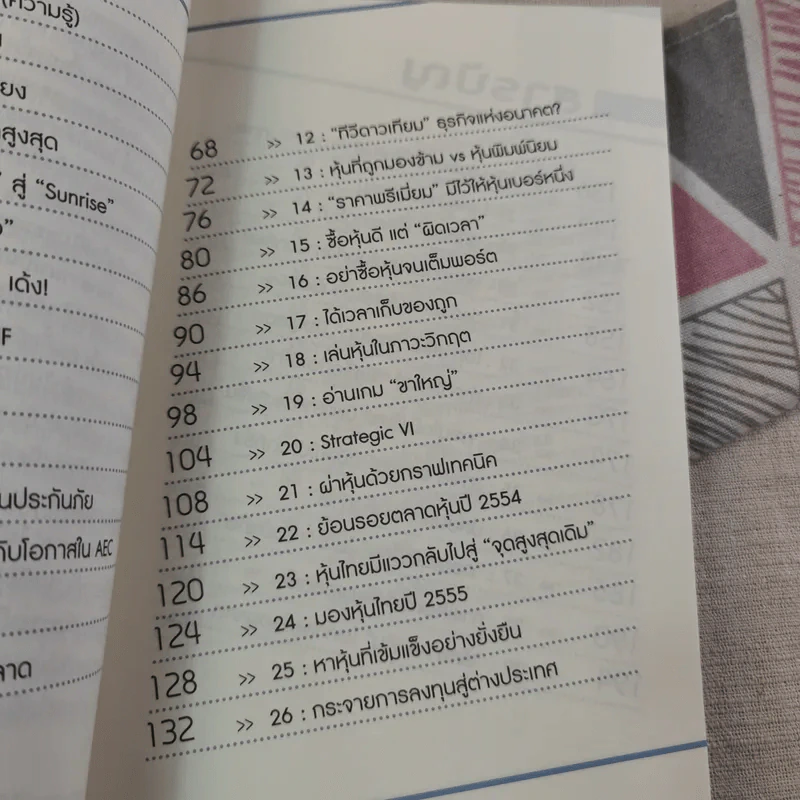 (ความรู้)
ยง
สูงสุด
" สู่ "Sunrise"
เด้ง!
F
นประกันภัย
กับโอกาสใน AEC
ลาด
68 >> 12 : "ทีวีดาวเทียม" ธุรกิจแห่งอนาคต?
72 >> 13 : หุ้นที่ถูกมองข้าม vs หุ้นพิมพ์นิยม
76 >> 14 : "ราคาพรีเมี่ยม" มีไว้ให้หุ้นเบอร์หนึ่ง
80 >> 15 : ซื้อหุ้นดี แต่ "ผิดเวลา"
86 >> 16 : อย่าซื้อหุ้นจนเต็มพอร์ต
90 >> 17 : ได้เวลาเก็บของถูก
94 >> 18 : เล่นหุ้นในภาวะวิกฤต
98 >> 19 : อ่านเกม "ขาใหญ่"
104 >> 20 : Strategic VI
108 >> 21 : ผ่าหุ้นด้วยกราฟเทคนิค
114 >> 22 : ย้อนรอยตลาดหุ้นปี 2554
120 >> 23 : หุ้นไทยมีแววกลับไปสู่ "จุดสูงสุดเดิม"
124 >> 24 : มองหุ้นไทยปี 2555
128 >> 25 : หาหุ้นที่เข้มแข็งอย่างยั่งยืน
132 >> 26 : กระจายการลงทุนสู่ต่างประเทศ